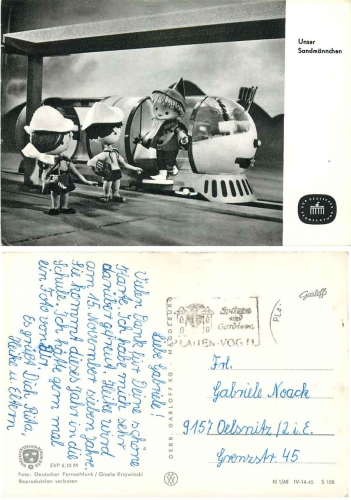 Unser
Sandmännchen
Garloff
Liebe Gabriele!
Vielen Dank für Deine schöne
Karte. Ich habe mich sehr
darüber gefreut. Heike wird
am 16. November sieben Jahre.
Sie kommt dieses Jahr in die
Schule. Ich hätte gern mal
ein Foto von Dir.
Es grüßt Dich
Heike u. Eltern
GEBR. GARLOFF KG MAGDEBURG
Spitzen
und
Gardinen
PLAUEN-VOGTL
PLA
Frl.
Gabriele Noack
9157 Oelsnitz/i.E.
Grenzstr. 45
EVP 0,10 M
Foto: Deutscher Fernsehfunk / Gisela Krzywinski
Reproduktion verboten
N 1/68 IV-14-45 S 108